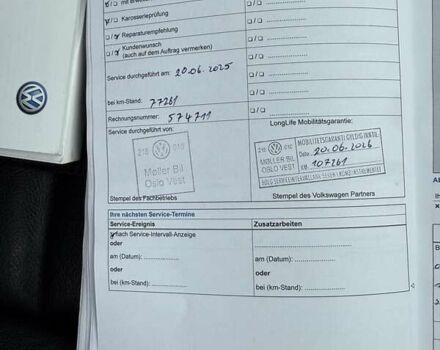 ☑ Karosserieprüfung
☑ Reparaturempfehlung
☑ Kundenwunsch
(auch auf dem Auftrag vermerken)
Service durchgeführt am: 20.06.2025
bei km-Stand: 77261
Rechnungsnummer: 574711
Service durchgeführt von:
218 010
Møller Bil
Oslo Vest
Stempel des Fachbetriebs
LongLife Mobilitätsgarantie:
218 010
MØLLER BIL
OSLO VEST
MOBILITETSGARANTI GYLDIG INNTIL
Dato: 20.06.2026
KM: 107261
Stempel des Volkswagen Partners
Ihre nächsten Service-Termine
Service-Ereignis Zusatzarbeiten
nach Service-Intervall-Anzeige
oder oder
am (Datum): am (Datum):
oder oder
bei (km-Stand): bei (km-Stand):